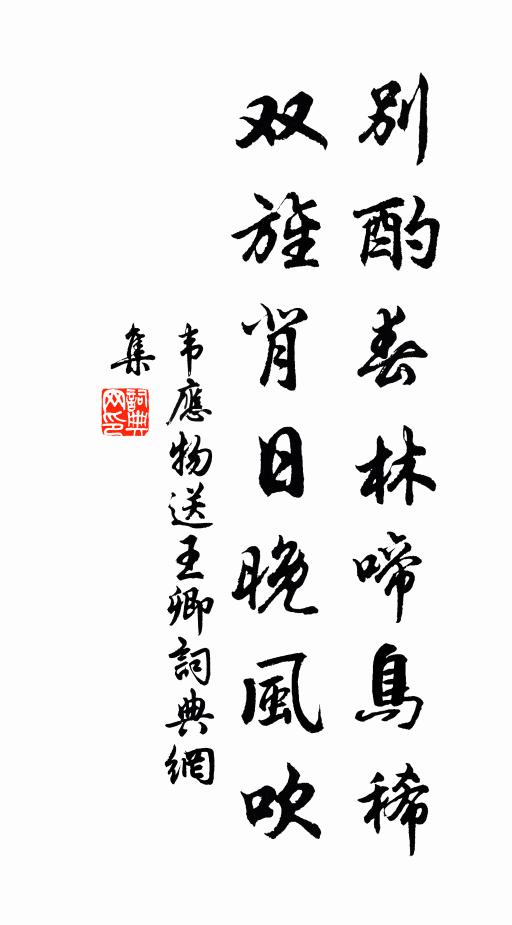 別酌春林啼鳥稀
双旌背日晚風吹
韦應物送王卿詞典網
集
詞典
网印